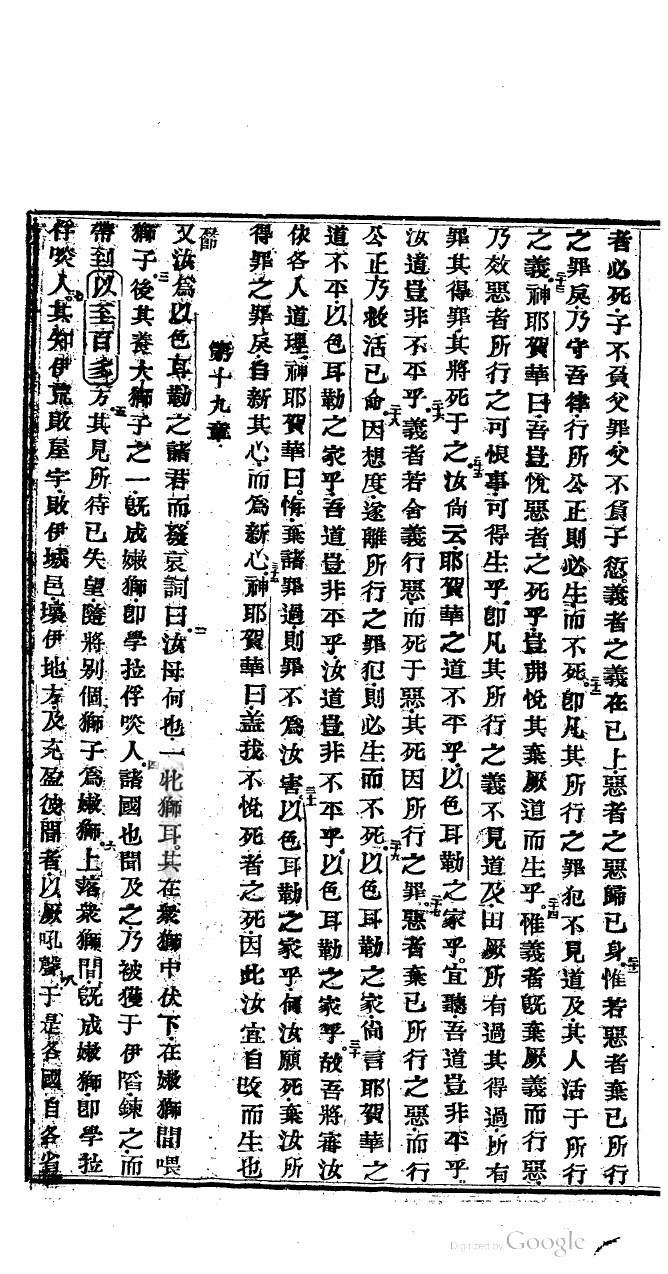 者必死子不負父罪父不負子愆義者之義在已上惡者之惡歸已身惟若惡者棄已所行
之罪戾乃守吾律行所公正則必生而不死卽凡其所行之罪犯不見道及其人活于所行
之義神耶賀華曰吾豈悅惡者之死乎豈弗悅其棄厥道而生乎惟義者旣棄厥義而行惡
乃效惡者所行之可恨事可得生乎卽凡其所行之義不見道及田厥所有過其得過所有
罪其得罪其將死于之汝尚云耶賀華之道不平乎以色耳勒之家乎宜聽吾道豈非平乎
汝道豈非不平乎義者若舍義行惡而死于惡其死因所行之罪惡者棄已所行之惡而行
公正乃救活已命因想度遂離所行之罪犯則必生而不死以色耳勒之家尚言耶賀華之
道不平以色耳勒之家乎吾道豈非平乎汝道豈非不平乎以色耳勒之家乎故吾將審汝
依各人道理神耶賀華曰悔棄諸罪過則罪不爲汝害以色耳勒之家乎何汝願死棄汝所
得罪之罪戾自新其心而爲新心神耶賀華曰蓋我不悅死者之死因此汝宜自改而生也
第十九章
又汝爲以色耳勒之諸君而發哀詞曰汝母何也一牝獅耳其在衆獅中伏下在嫩獅間喂
獅子後其養大獅子之一旣成嫩獅卽學拉俘啖人諸國也聞及之乃被獲于伊陷鍊之而
帶到以至百多方其見所待已失望隨將别個獅子爲嫩獅上落衆獅間旣成嫩獅卽學拉
俘啖人其知伊荒敗屋宇敗伊城邑壞伊地方及充盈彼間者以厥吼聲于是各國自各省
Digitized by Google